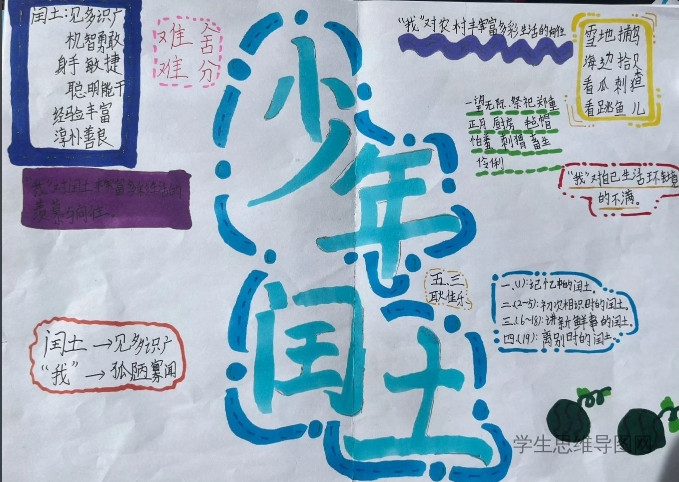 闰土:见多识广
机智勇敢
身手敏捷
聪明能干
经验丰富
淳朴善良
难舍
难分
"我"对闰土丰富
羡慕与向往。
闰土→见多识广
"我"→孤陋寡闻
少年
闰土
"我"对农村丰富多彩生活的向往
雪地捕鸟
海边拾贝
看瓜刺猹
看跳鱼儿
一望无际 祭祀 郑重
正月 厨房 毡帽
怕羞 刺猬 畜生
伶俐
"我"对自己生活环境
的不满。
五.三
耿佳乐
一.(1):记忆中的闰土。
二.(2~5):初次相识时的闰土。
三.(6~18):讲新鲜事的闰土。
四.(19):离别时的闰土。
学生思维导图网